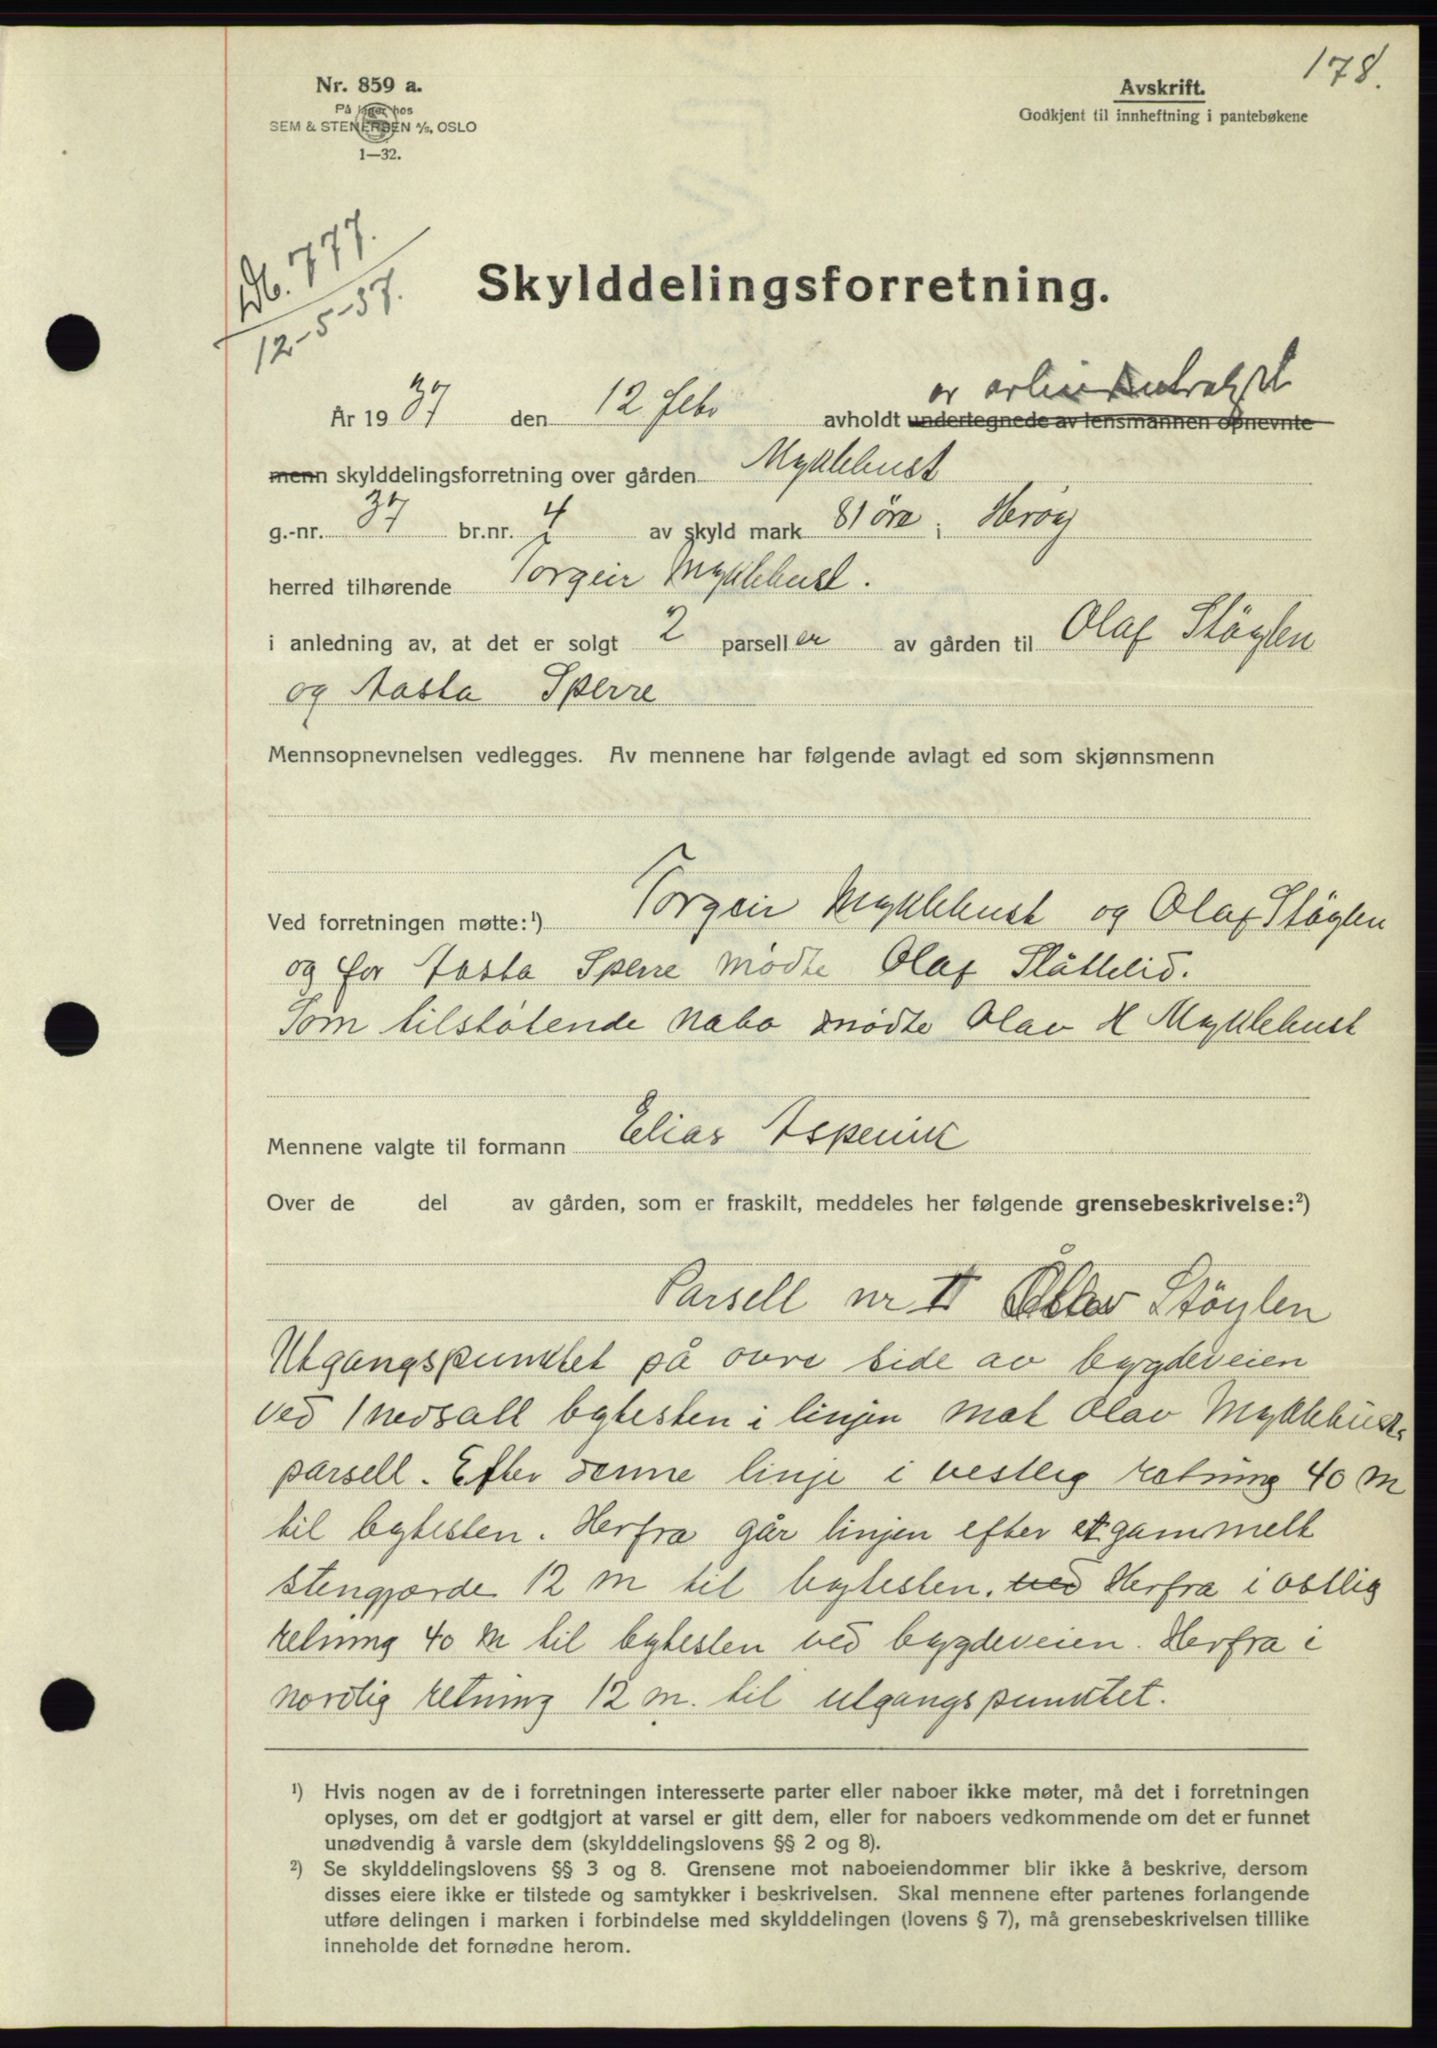 178.
Nr. 859 a.
På lager hos
SEM & STENERSEN A/S, OSLO
1—32.
Avskrift.
Godkjent til innheftning i pantebøkene
Db. 777.
12-5-37.
Skylddelingsforretning.
av
År 1937 den 12 febr avholdt undertegnede av lensmannen opnevnte
menn skylddelingsforretning over gården Myklebust
g.-nr. 37 br.nr. 4 av skyld mark 81 öre i Heröy
herred tilhørende Torgeir Myklebust.
i anledning av, at det er solgt 2 parseller av gården til Olaf Stöylen
og Aasta Sperre
Mennsopnevnelsen vedlegges. Av mennene har følgende avlagt ed som skjønnsmenn
Ved forretningen møtte:¹) Torgeir Myklebust og Olaf Stöylen
og for Aasta Sperre mödte Olaf Slåttelid.
Som tilstötende nabo mödte Olav H Myklebust
Mennene valgte til formann Elias Aspevik
Over de del av gården, som er fraskilt, meddeles her følgende grensebeskrivelse:²)
Parsell nr II Stöylen
Utgangspunktet på ovre side av bygdeveien
ved 1 nedsatt bytesten i linjen mot Olav Myklebusts
parsell. Efter denne linje i vestlig retning 40 m
til bytesten. Herfra går linjen efter et gammelt
stengjorde 12 m til bytesten. ved Herfra i ostlig
retning 40 m til bytesten ved bygdeveien. Herfra i
nordlig retning 12 m. til utgangspunktet.
¹) Hvis nogen av de i forretningen interesserte parter eller naboer ikke møter, må det i forretningen
oplyses, om det er godtgjort at varsel er gitt dem, eller for naboers vedkommende om det er funnet
unødvendig å varsle dem (skylddelingslovens §§ 2 og 8).
²) Se skylddelingslovens §§ 3 og 8. Grensene mot naboeiendommer blir ikke å beskrive, dersom
disses eiere ikke er tilstede og samtykker i beskrivelsen. Skal mennene efter partenes forlangende
utføre delingen i marken i forbindelse med skylddelingen (lovens § 7), må grensebeskrivelsen tillike
inneholde det fornødne herom.